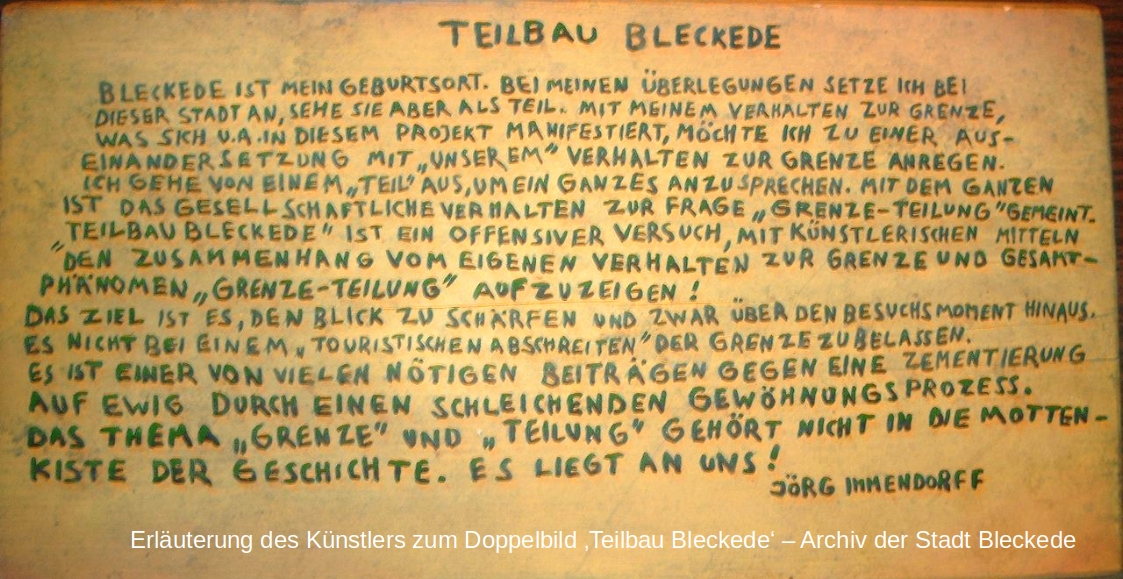 TEILBAU BLECKEDE
BLECKEDE IST MEIN GEBURTSORT. BEI MEINEN ÜBERLEGUNGEN SETZE ICH BEI
DIESER STADT AN, SEHE SIE ABER ALS TEIL. MIT MEINEM VERHALTEN ZUR GRENZE,
WAS SICH U.A. IN DIESEM PROJEKT MANIFESTIERT, MÖCHTE ICH ZU EINER AUS-
EINANDERSETZUNG MIT „UNSEREM" VERHALTEN ZUR GRENZE ANREGEN.
ICH GEHE VON EINEM „TEIL" AUS, UM EIN GANZES ANZUSPRECHEN. MIT DEM GANZEN
IST DAS GESELLSCHAFTLICHE VERHALTEN ZUR FRAGE „GRENZE-TEILUNG" GEMEINT.
„TEILBAU BLECKEDE" IST EIN OFFENSIVER VERSUCH, MIT KÜNSTLERISCHEN MITTELN
DEN ZUSAMMENHANG VOM EIGENEN VERHALTEN ZUR GRENZE UND GESAMT-
PHÄNOMEN „GRENZE-TEILUNG" AUFZUZEIGEN!
DAS ZIEL IST ES, DEN BLICK ZU SCHÄRFEN UND ZWAR ÜBER DEN BESUCHSMOMENT HINAUS.
ES NICHT BEI EINEM „TOURISTISCHEN ABSCHREITEN" DER GRENZE ZU BELASSEN.
ES IST EINER VON VIELEN NÖTIGEN BEITRÄGEN GEGEN EINE ZEMENTIERUNG
AUF EWIG DURCH EINEN SCHLEICHENDEN GEWÖHNUNGSPROZESS.
DAS THEMA „GRENZE" UND „TEILUNG" GEHÖRT NICHT IN DIE MOTTEN-
KISTE DER GESCHICHTE. ES LIEGT AN UNS!
JÖRG IMMENDORFF
Erläuterung des Künstlers zum Doppelbild ‚Teilbau Bleckede‘ – Archiv der Stadt Bleckede